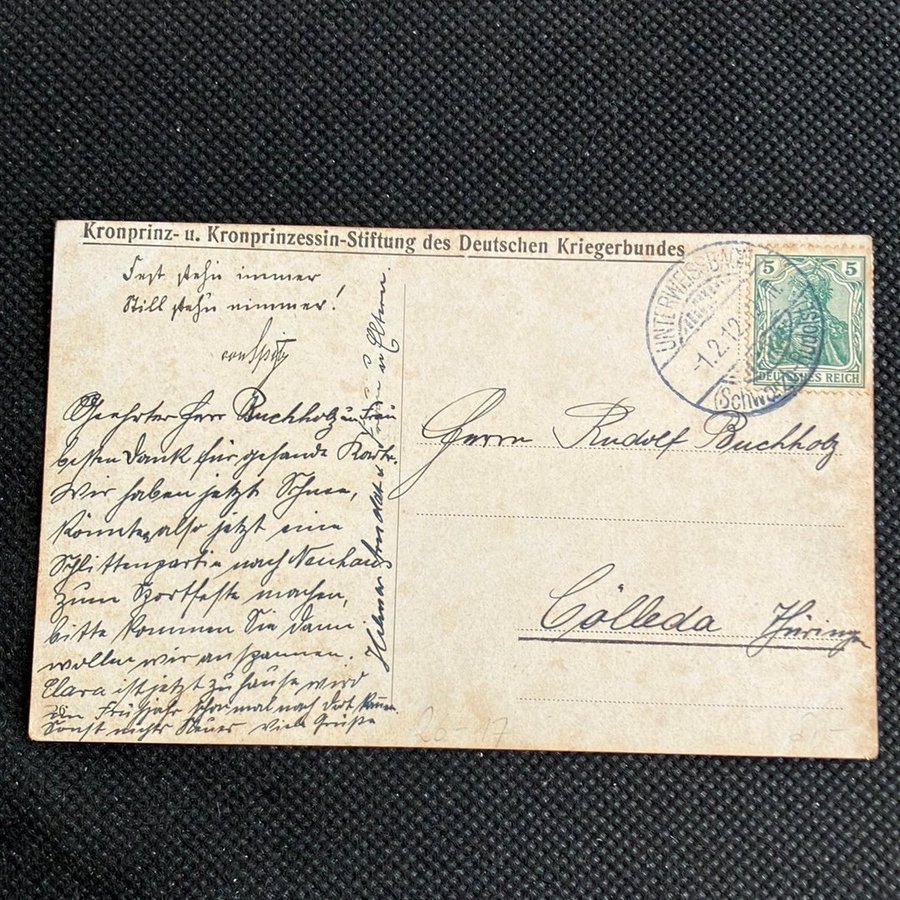 Kronprinz- u. Kronprinzessin-Stiftung des Deutschen Kriegerbundes
Fest stehn immer
Still stehn nimmer!
Geehrter Herr Buchholz u. Frau
besten Dank für gesande Karte.
Wir haben jetzt Schnee,
könnten also jetzt eine
Schlittenpartie nach Neuhaus
zum Sportfeste machen,
bitte kommen Sie dann
wollen wir anspannen.
Clara ist jetzt zu hause wird
im Frühjahr schon mal nach dort kommen.
Sonst nichts Neues viele Grüße
u Eltern.
26
UNTERWEISSBACH
-1.2.12
(Schwarzb. Rudolst.)
5 5
DEUTSCHES REICH
Herrn Rudolf Buchholz
Cölleda Thüringen
20-17